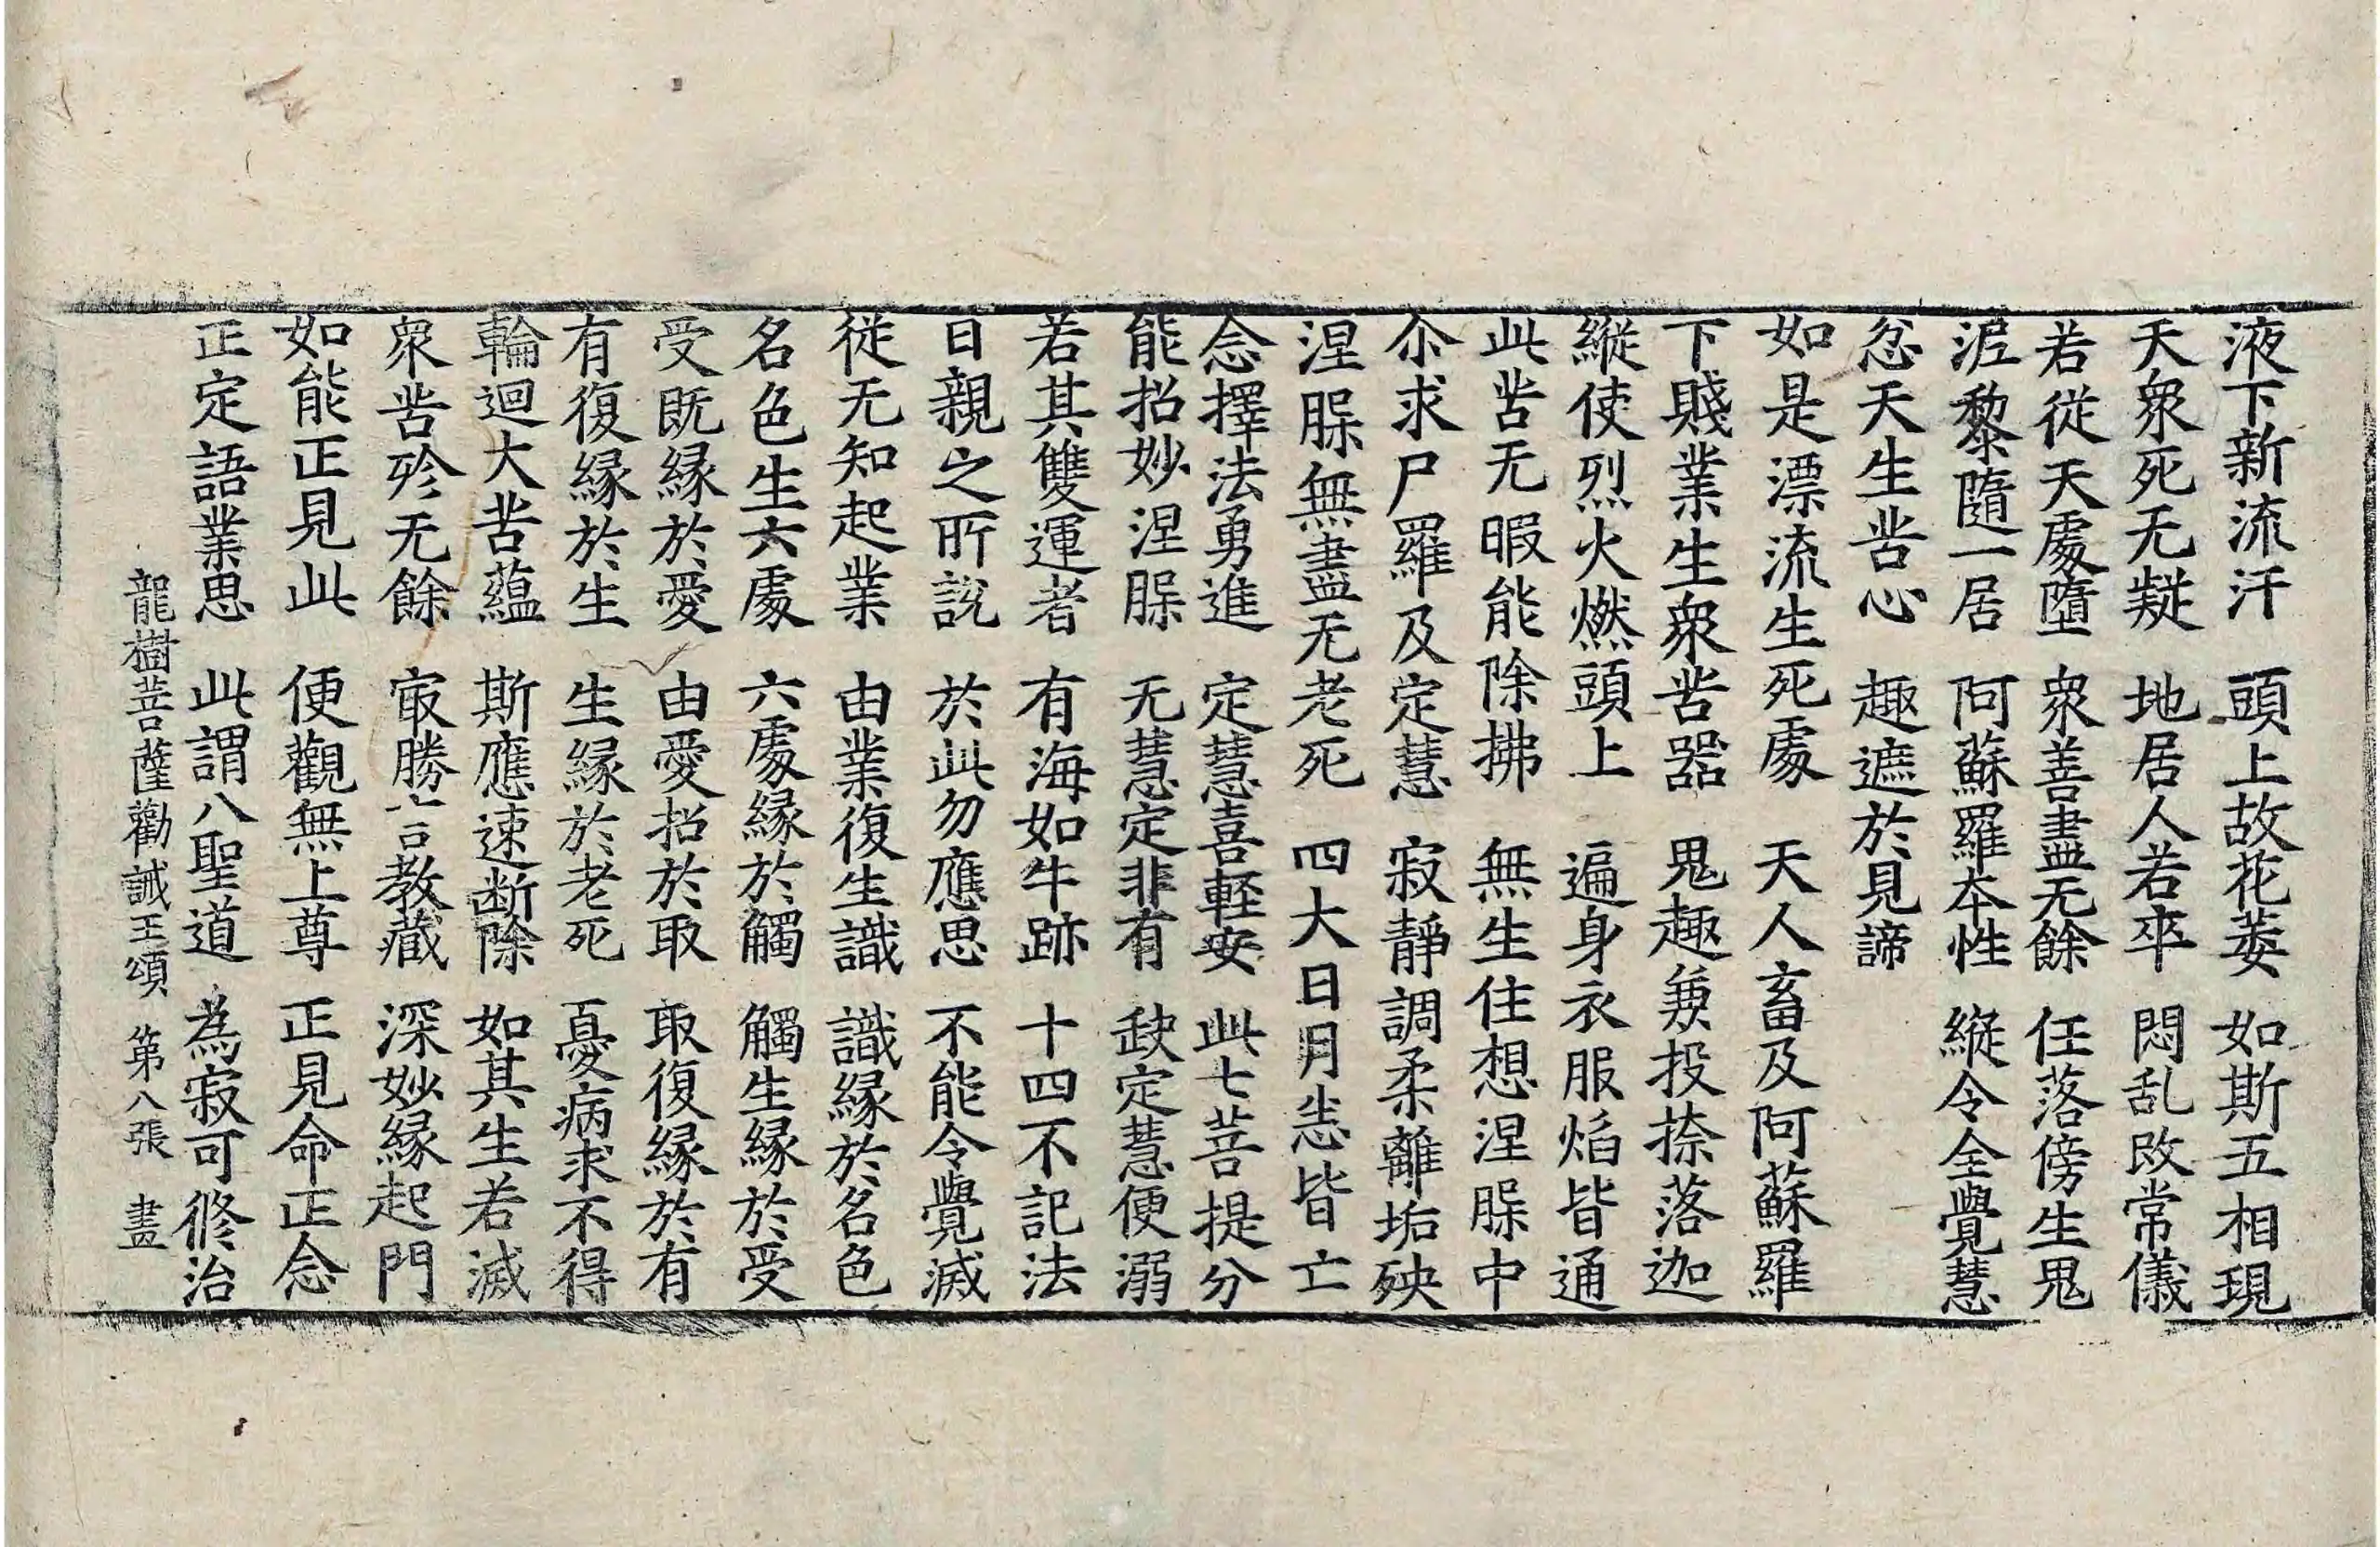 液下新流汗　頭上故花萎　如斯五相現
天衆死无疑　地居人若卒　悶乱改常儀
若從天處墮　衆善盡无餘　任落傍生鬼
泥黎隨一居　阿蘇羅本性　縱令全覺慧
忿天生苦心　趣遮於見諦
如是漂流生死處　天人畜及阿蘇羅
下賤業生衆苦器　鬼趣兼投捺落迦
縱使烈火燃頭上　遍身衣服焰皆通
此苦无暇能除拂　無生住想涅槃中
尒求尸羅及定慧　寂靜調柔離垢殃
涅槃無盡无老死　四大日月悉皆亡
念擇法勇進　定慧喜輕安　此七菩提分
能招妙涅槃　无慧定非有　缺定慧便溺
若其雙運者　有海如牛跡　十四不記法
日親之所說　於此勿應思　不能令覺滅
從无知起業　由業復生識　識緣於名色
名色生六處　六處緣於觸　觸生緣於受
受既緣於愛　由愛招於取　取復緣於有
有復緣於生　生緣於老死　憂病求不得
輪迴大苦蘊　斯應速断除　如其生若滅
衆苦殄无餘　最勝言教藏　深妙緣起門
如能正見此　便觀無上尊　正見命正念
正定語業思　此謂八聖道　為寂可修治
龍樹菩薩勸誡王頌　第八張　盡